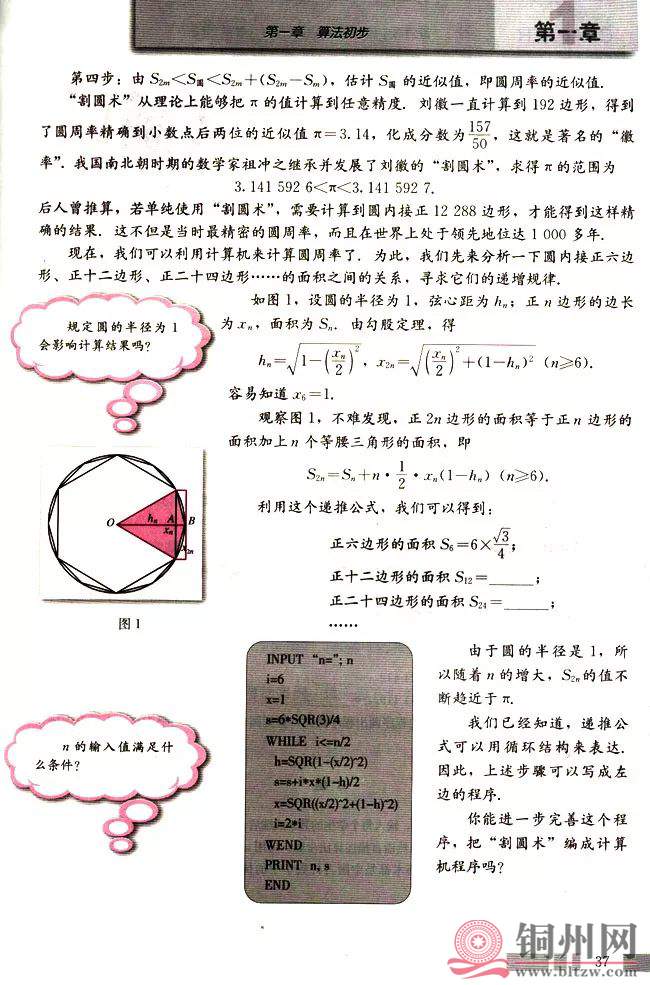 第一章 算法初步
第一章
1
第四步：由 S₂ₘ<S圆<S₂ₘ+(S₂ₘ−Sₘ)，估计 S圆 的近似值，即圆周率的近似值.
“割圆术”从理论上能够把 π 的值计算到任意精度. 刘徽一直计算到 192 边形，得到
了圆周率精确到小数点后两位的近似值 π=3.14，化成分数为 157/50，这就是著名的“徽
率”. 我国南北朝时期的数学家祖冲之继承并发展了刘徽的“割圆术”，求得 π 的范围为
3.141 592 6<π<3.141 592 7.
后人曾推算，若单纯使用“割圆术”，需要计算到圆内接正 12 288 边形，才能得到这样精
确的结果. 这不但是当时最精密的圆周率，而且在世界上处于领先地位达 1 000 多年.
现在，我们可以利用计算机来计算圆周率了. 为此，我们先来分析一下圆内接正六边
形、正十二边形、正二十四边形……的面积之间的关系，寻求它们的递增规律.
规定圆的半径为 1
会影响计算结果吗？
如图 1，设圆的半径为 1，弦心距为 hₙ；正 n 边形的边长
为 xₙ，面积为 Sₙ. 由勾股定理，得
hₙ=√(1−(xₙ/2)²)，x₂ₙ=√((xₙ/2)²+(1−hₙ)²) (n≥6).
容易知道 x₆=1.
观察图 1，不难发现，正 2n 边形的面积等于正 n 边形的
面积加上 n 个等腰三角形的面积，即
S₂ₙ=Sₙ+n·1/2·xₙ(1−hₙ) (n≥6).
利用这个递推公式，我们可以得到：
正六边形的面积 S₆=6×√3/4；
正十二边形的面积 S₁₂=______；
正二十四边形的面积 S₂₄=______；
……
O hₙ A B
xₙ
x₂ₙ
图 1
n 的输入值满足什
么条件？
INPUT “n=”; n
i=6
x=1
s=6*SQR(3)/4
WHILE i<=n/2
h=SQR(1-(x/2)^2)
s=s+i*x*(1-h)/2
x=SQR((x/2)^2+(1-h)^2)
i=2*i
WEND
PRINT n, s
END
由于圆的半径是 1，所
以随着 n 的增大，S₂ₙ的值不
断趋近于 π.
我们已经知道，递推公
式可以用循环结构来表达.
因此，上述步骤可以写成左
边的程序.
你能进一步完善这个程
序，把“割圆术”编成计算
机程序吗？
37
铜州网
www.bltzw.com